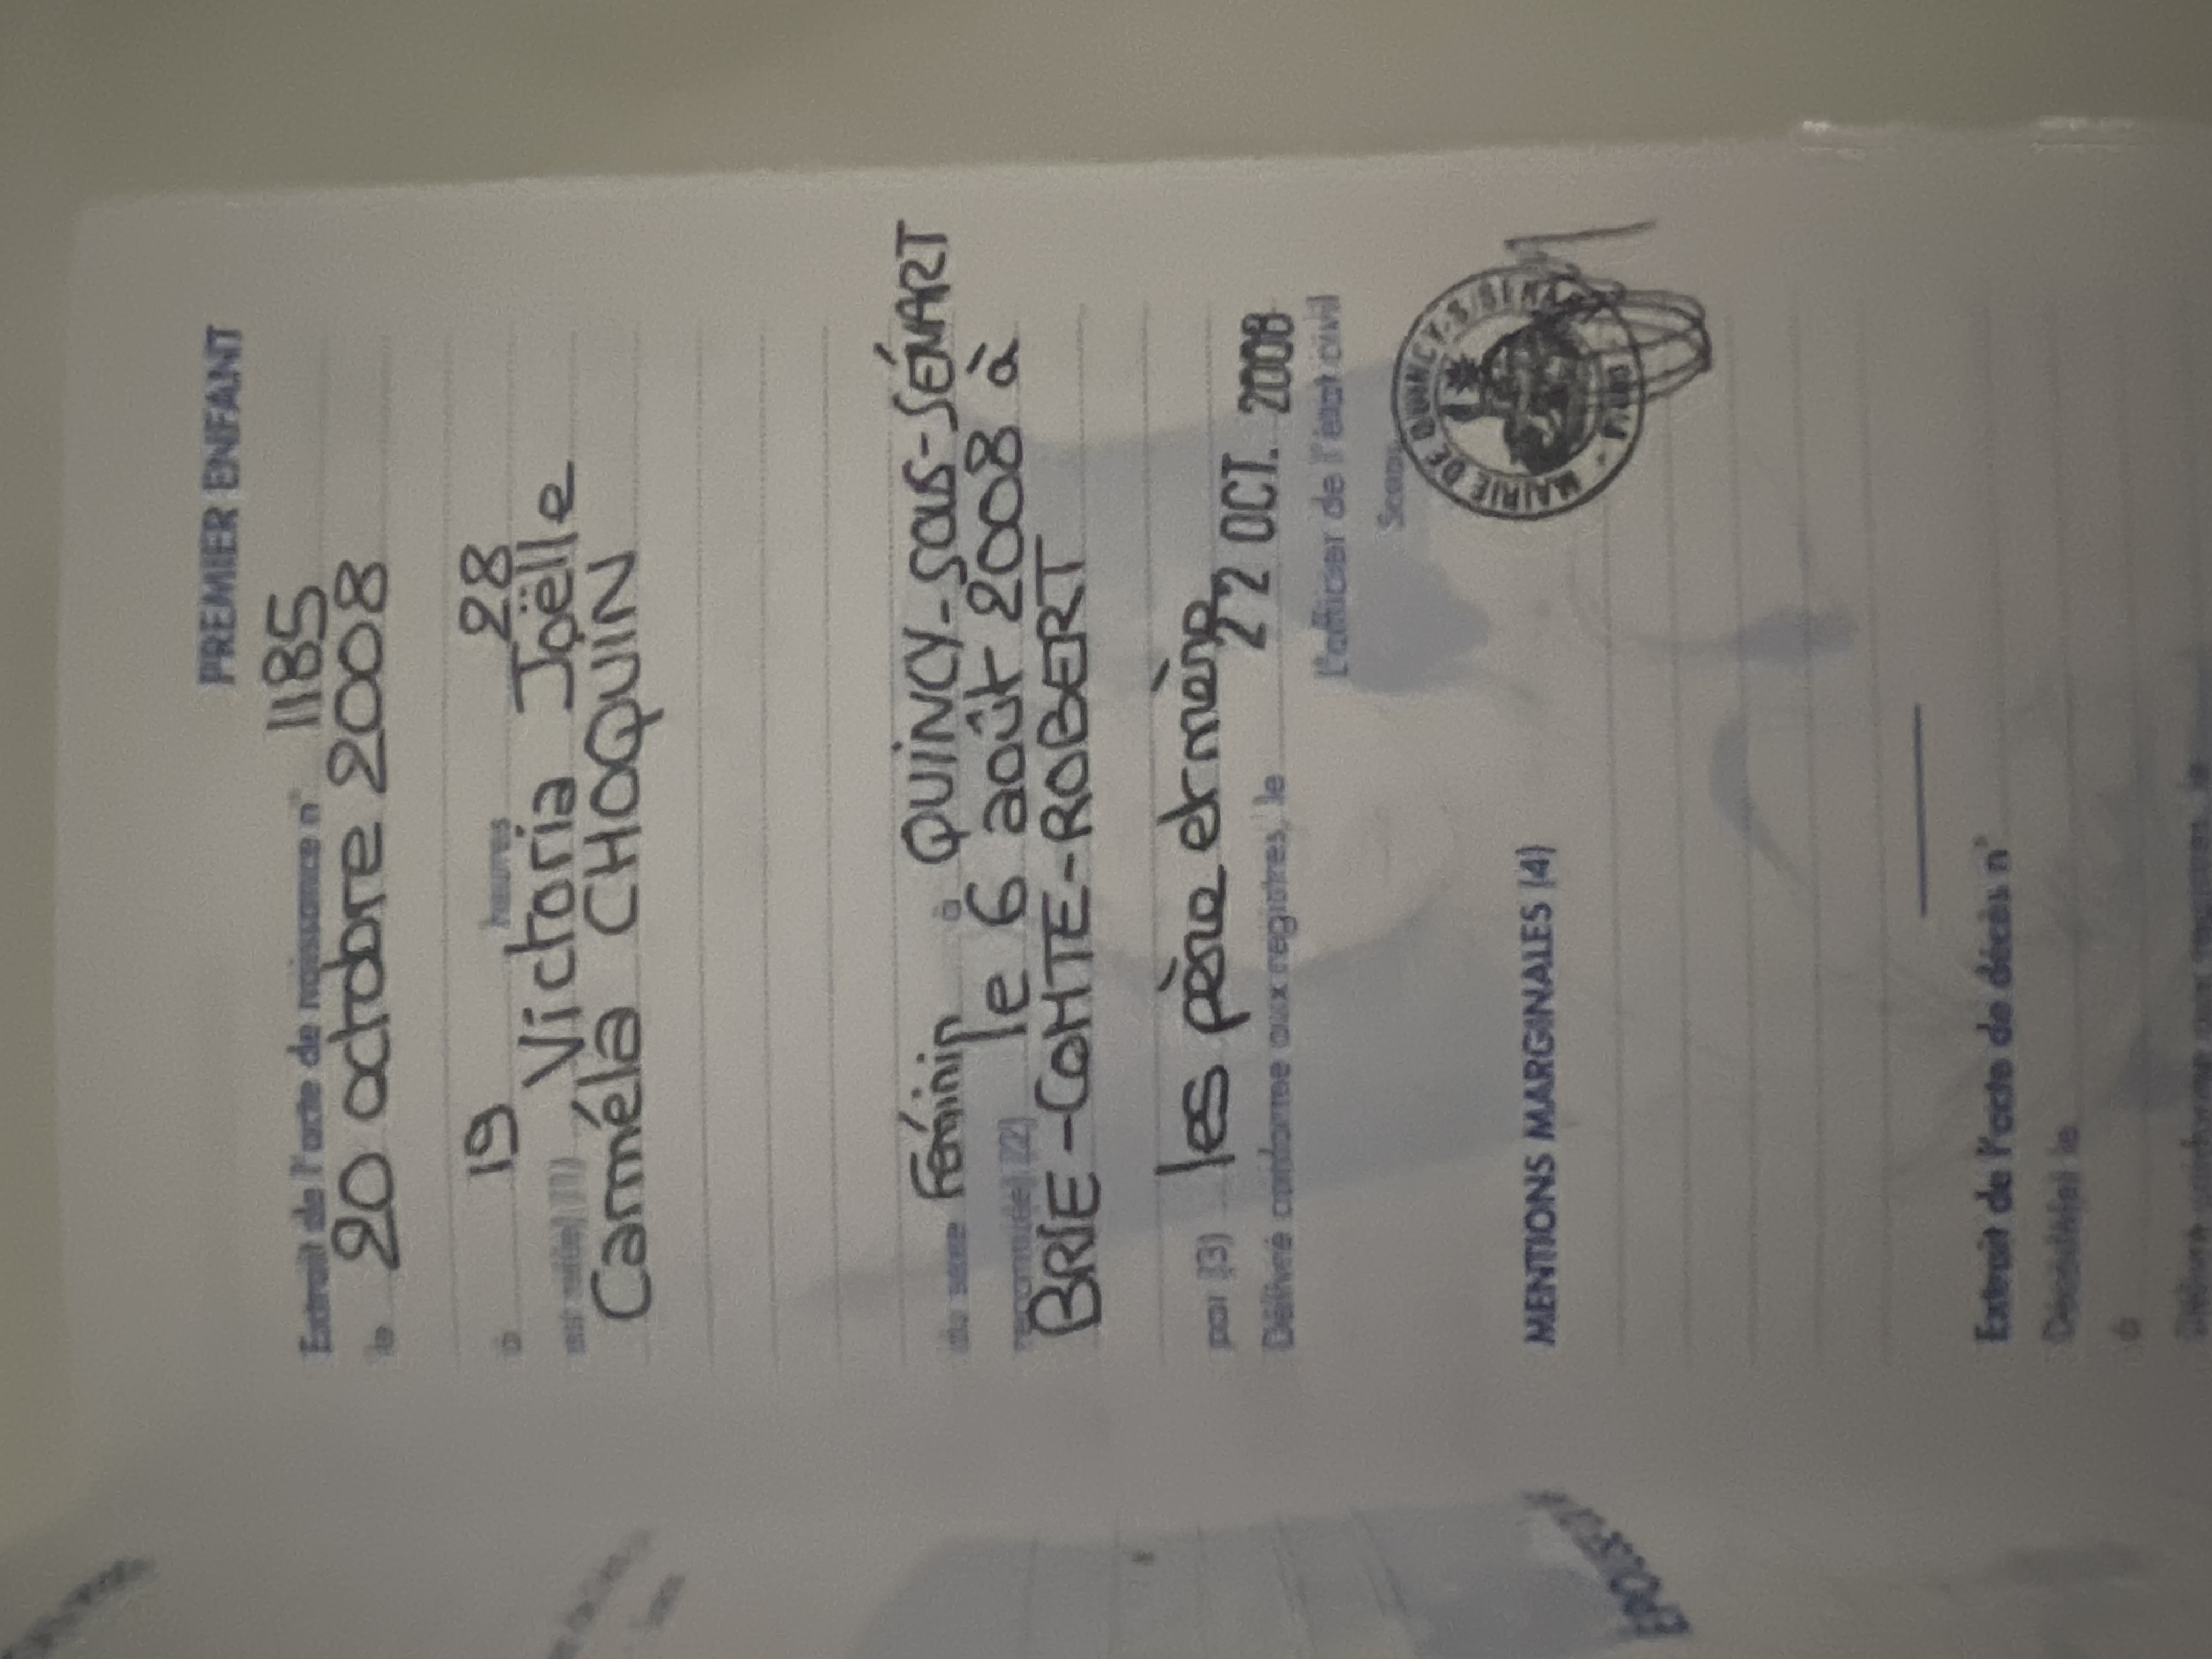 PREMIER ENFANT
Extrait de l'acte de naissance n° 1185
le 20 octobre 2008
à 19 heures 28
est né(e) (1) Victoria Joëlle
Caméla CHOQUIN
du sexe Féminin à QUINCY-SOUS-SÉNART
reconnu(e) (2) le 6 août 2008 à
BRIE-COMTE-ROBERT
par (3) les père et mère
Délivré conforme aux registres, le 22 OCT. 2008
L'officier de l'état civil
Sceau
MAIRIE DE QUINCY-S/SENART
MENTIONS MARGINALES (4)
Extrait de l'acte de décès n°
Décédé(e) le
à